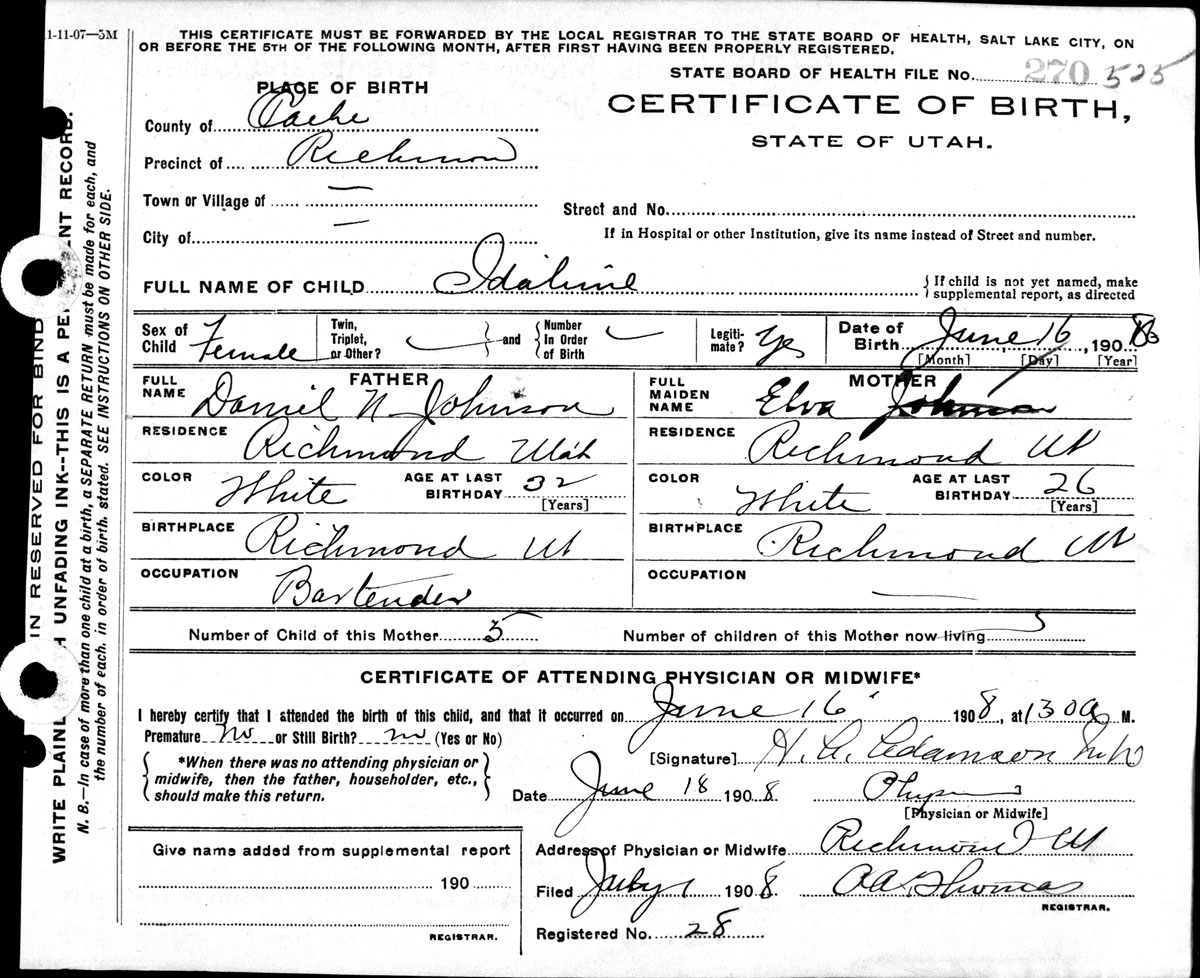 1-11-07—5M
THIS CERTIFICATE MUST BE FORWARDED BY THE LOCAL REGISTRAR TO THE STATE BOARD OF HEALTH, SALT LAKE CITY, ON
OR BEFORE THE 5TH OF THE FOLLOWING MONTH, AFTER FIRST HAVING BEEN PROPERLY REGISTERED.
STATE BOARD OF HEALTH FILE No. 270 525
PLACE OF BIRTH
CERTIFICATE OF BIRTH,
STATE OF UTAH.
County of Cache
Precinct of Richmond
Town or Village of —
Street and No.
City of —
If in Hospital or other Institution, give its name instead of Street and number.
FULL NAME OF CHILD Idaline
{If child is not yet named, make
supplemental report, as directed
Sex of Child Female
Twin, Triplet, or Other?
} and {
Number In Order of Birth
Legiti-mate? Yes
Date of Birth June 16, 1908
[Month] [Day] [Year]
FATHER
FULL NAME Daniel N Johnson
MOTHER
FULL MAIDEN NAME Elva Johnson
RESIDENCE Richmond Utah
RESIDENCE Richmond Ut
COLOR White AGE AT LAST BIRTHDAY 32 [Years]
COLOR White AGE AT LAST BIRTHDAY 26 [Years]
BIRTHPLACE Richmond Ut
BIRTHPLACE Richmond Ut
OCCUPATION Bartender
OCCUPATION —
Number of Child of this Mother 5
Number of children of this Mother now living 5
CERTIFICATE OF ATTENDING PHYSICIAN OR MIDWIFE*
I hereby certify that I attended the birth of this child, and that it occurred on June 16 1908, at 130 a M.
Premature No or Still Birth? no (Yes or No)
{*When there was no attending physician or
midwife, then the father, householder, etc.,
should make this return.}
[Signature] H. A. Adamson M.D.
Date June 18 1908
[Physician or Midwife]
Give name added from supplemental report
190
REGISTRAR.
Address of Physician or Midwife Richmond Ut
Filed July 1 1908 Thomas
REGISTRAR.
Registered No. 28
IN RESERVED FOR BIND
WRITE PLAINL H UNFADING INK--THIS IS A PE NT RECORD.
N. B.—In case of more than one child at a birth, a SEPARATE RETURN must be made for each, and
the number of each, in order of birth, stated. SEE INSTRUCTIONS ON OTHER SIDE.